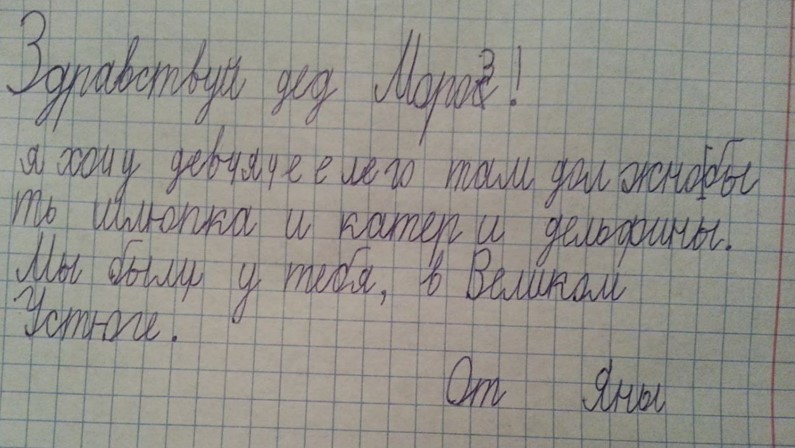 Здравствуй дед Мороз!
я хочу девчячее лего там должнобы
ть шлюпка и катер и дельфины.
Мы были у тебя, в Великом
Устюге.
От Яны